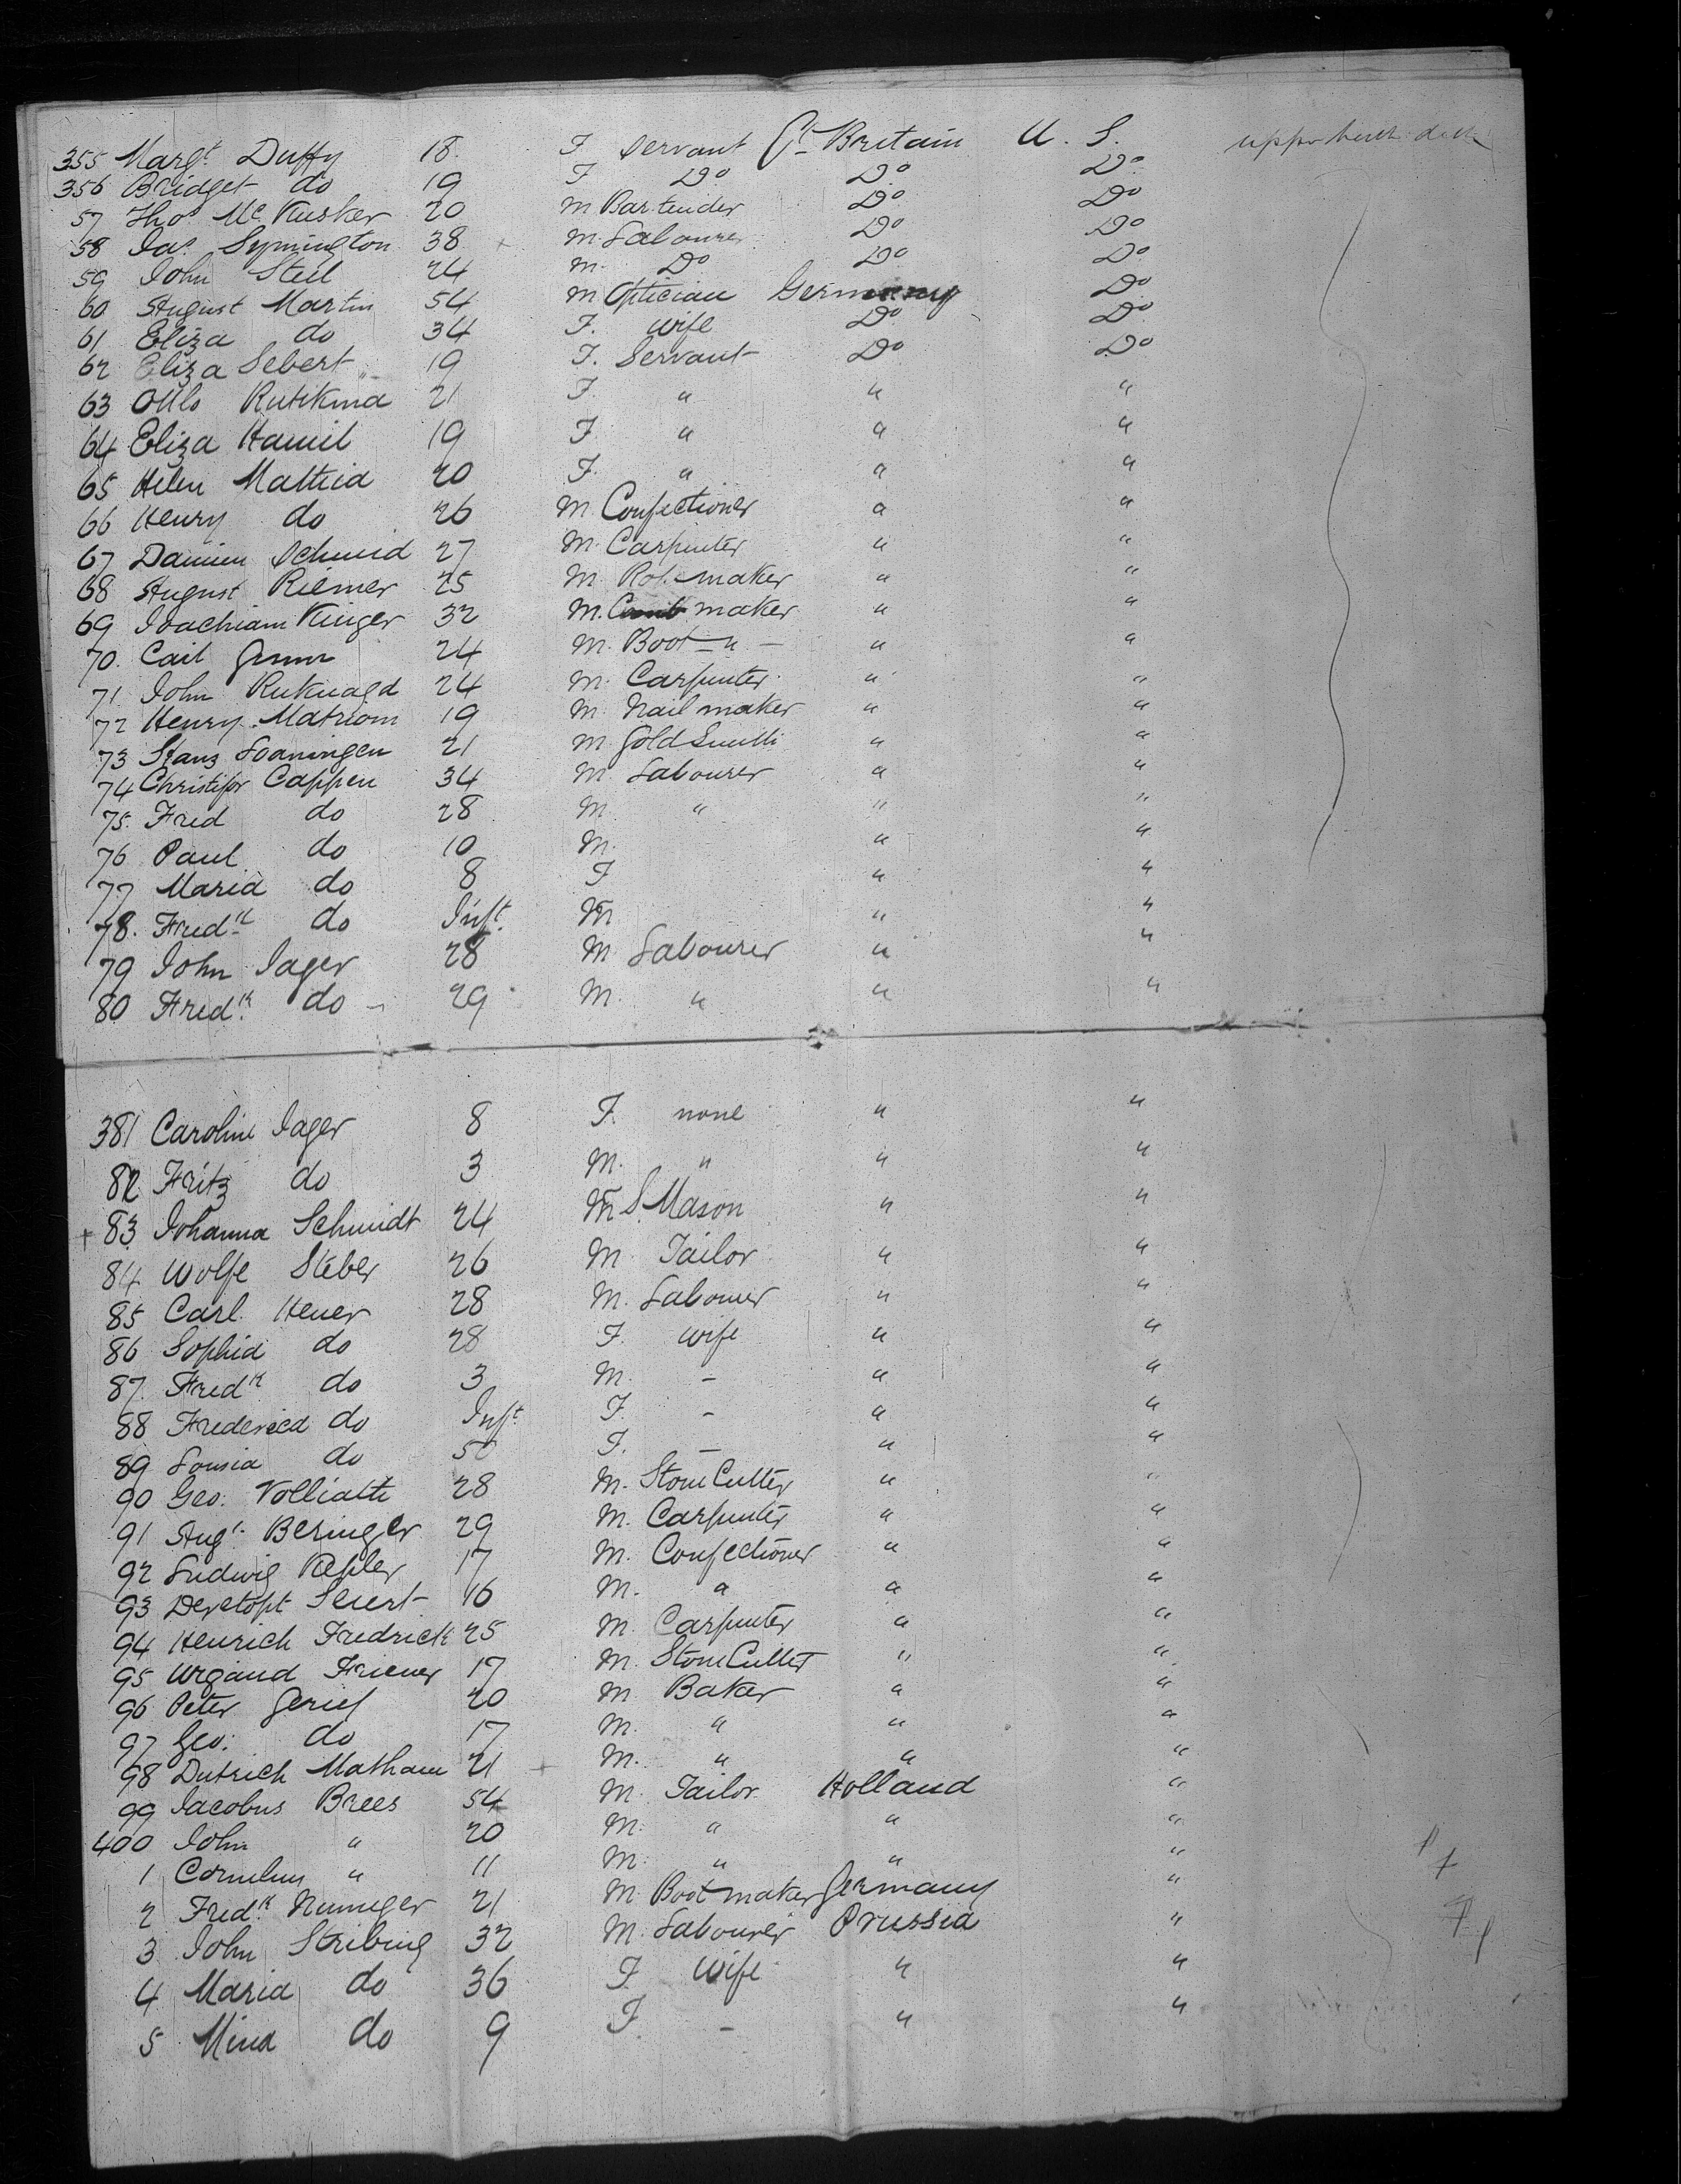 355 Margt. Duffy 18 F Servant Gt Britain U. S. upper
356 Bridget do 19 F Do Do Do
57 Thos Mc Kusker 20 M Bartender Do Do
58 Jas. Symington 38 M. Labourer Do Do
59 John Steil 24 M. Do Do Do
60 August Martin 54 M Optician Germany Do
61 Eliza do 34 F. wife Do Do
62 Eliza Sebert 19 F. Servant Do Do
63 21 F. " " "
64 Eliza Hamil 19 F " " "
65 Helen Mattiea 20 F. " " "
66 Henry do 26 M. Confectioner " "
67 Schmid 27 M. Carpenter " "
68 August Riemer 25 M. maker " "
69 Joachiam 32 M. Comb maker " "
70. 24 M. Boot " - " "
71 John 24 M. Carpenter " "
72 Henry 19 M. Nail maker " "
73 21 M Gold Smith " "
74 Cappen 34 M. Labourer " "
75. Fred do 28 M. " " "
76 Paul do 10 M. " "
77 Maria do 8 F " "
78. Fredk do Inft. M " "
79 John Jager 28 M. Labourer " "
80 Fredk. do 29 M. " " "
381 Caroline Jager 8 F. none " "
82 Fritz do 3 M. " " "
+ 83 Johanna Schmidt 24 M S. Mason " "
84 Wolfe Steber 26 M Tailor " "
85 Carl Heuer 28 M. Labourer " "
86 Sophia do 28 F. wife " "
87. Fredk do 3 M. - " "
88 Frederica do Inft F. - " "
89 Lousia do 50 F. - " "
90 Geo. 28 M. Stone Cutter " "
91 Augt. Beringer 29 M. Carpenter " "
92 Ludwig Kepler 17 M. Confectioner " "
93 16 M. " " "
94 Henrich Fredrick 25 M. Carpenter " "
95 17 M. Stone Cutter " "
96 Peter 20 M Baker " "
97 Geo. do 17 M. " " "
98 21 M. " " "
99 Jacobus Brees 54 M. Tailor Holland "
400 John " 20 M. " " "
1 Cornelius " 11 M. " " "
2 Fredk. 21 M. Boot maker Germany "
3 John Stribing 32 M. Labourer Prussia "
4 Maria do 36 F. wife " "
5 Mina do 9 F. - " "